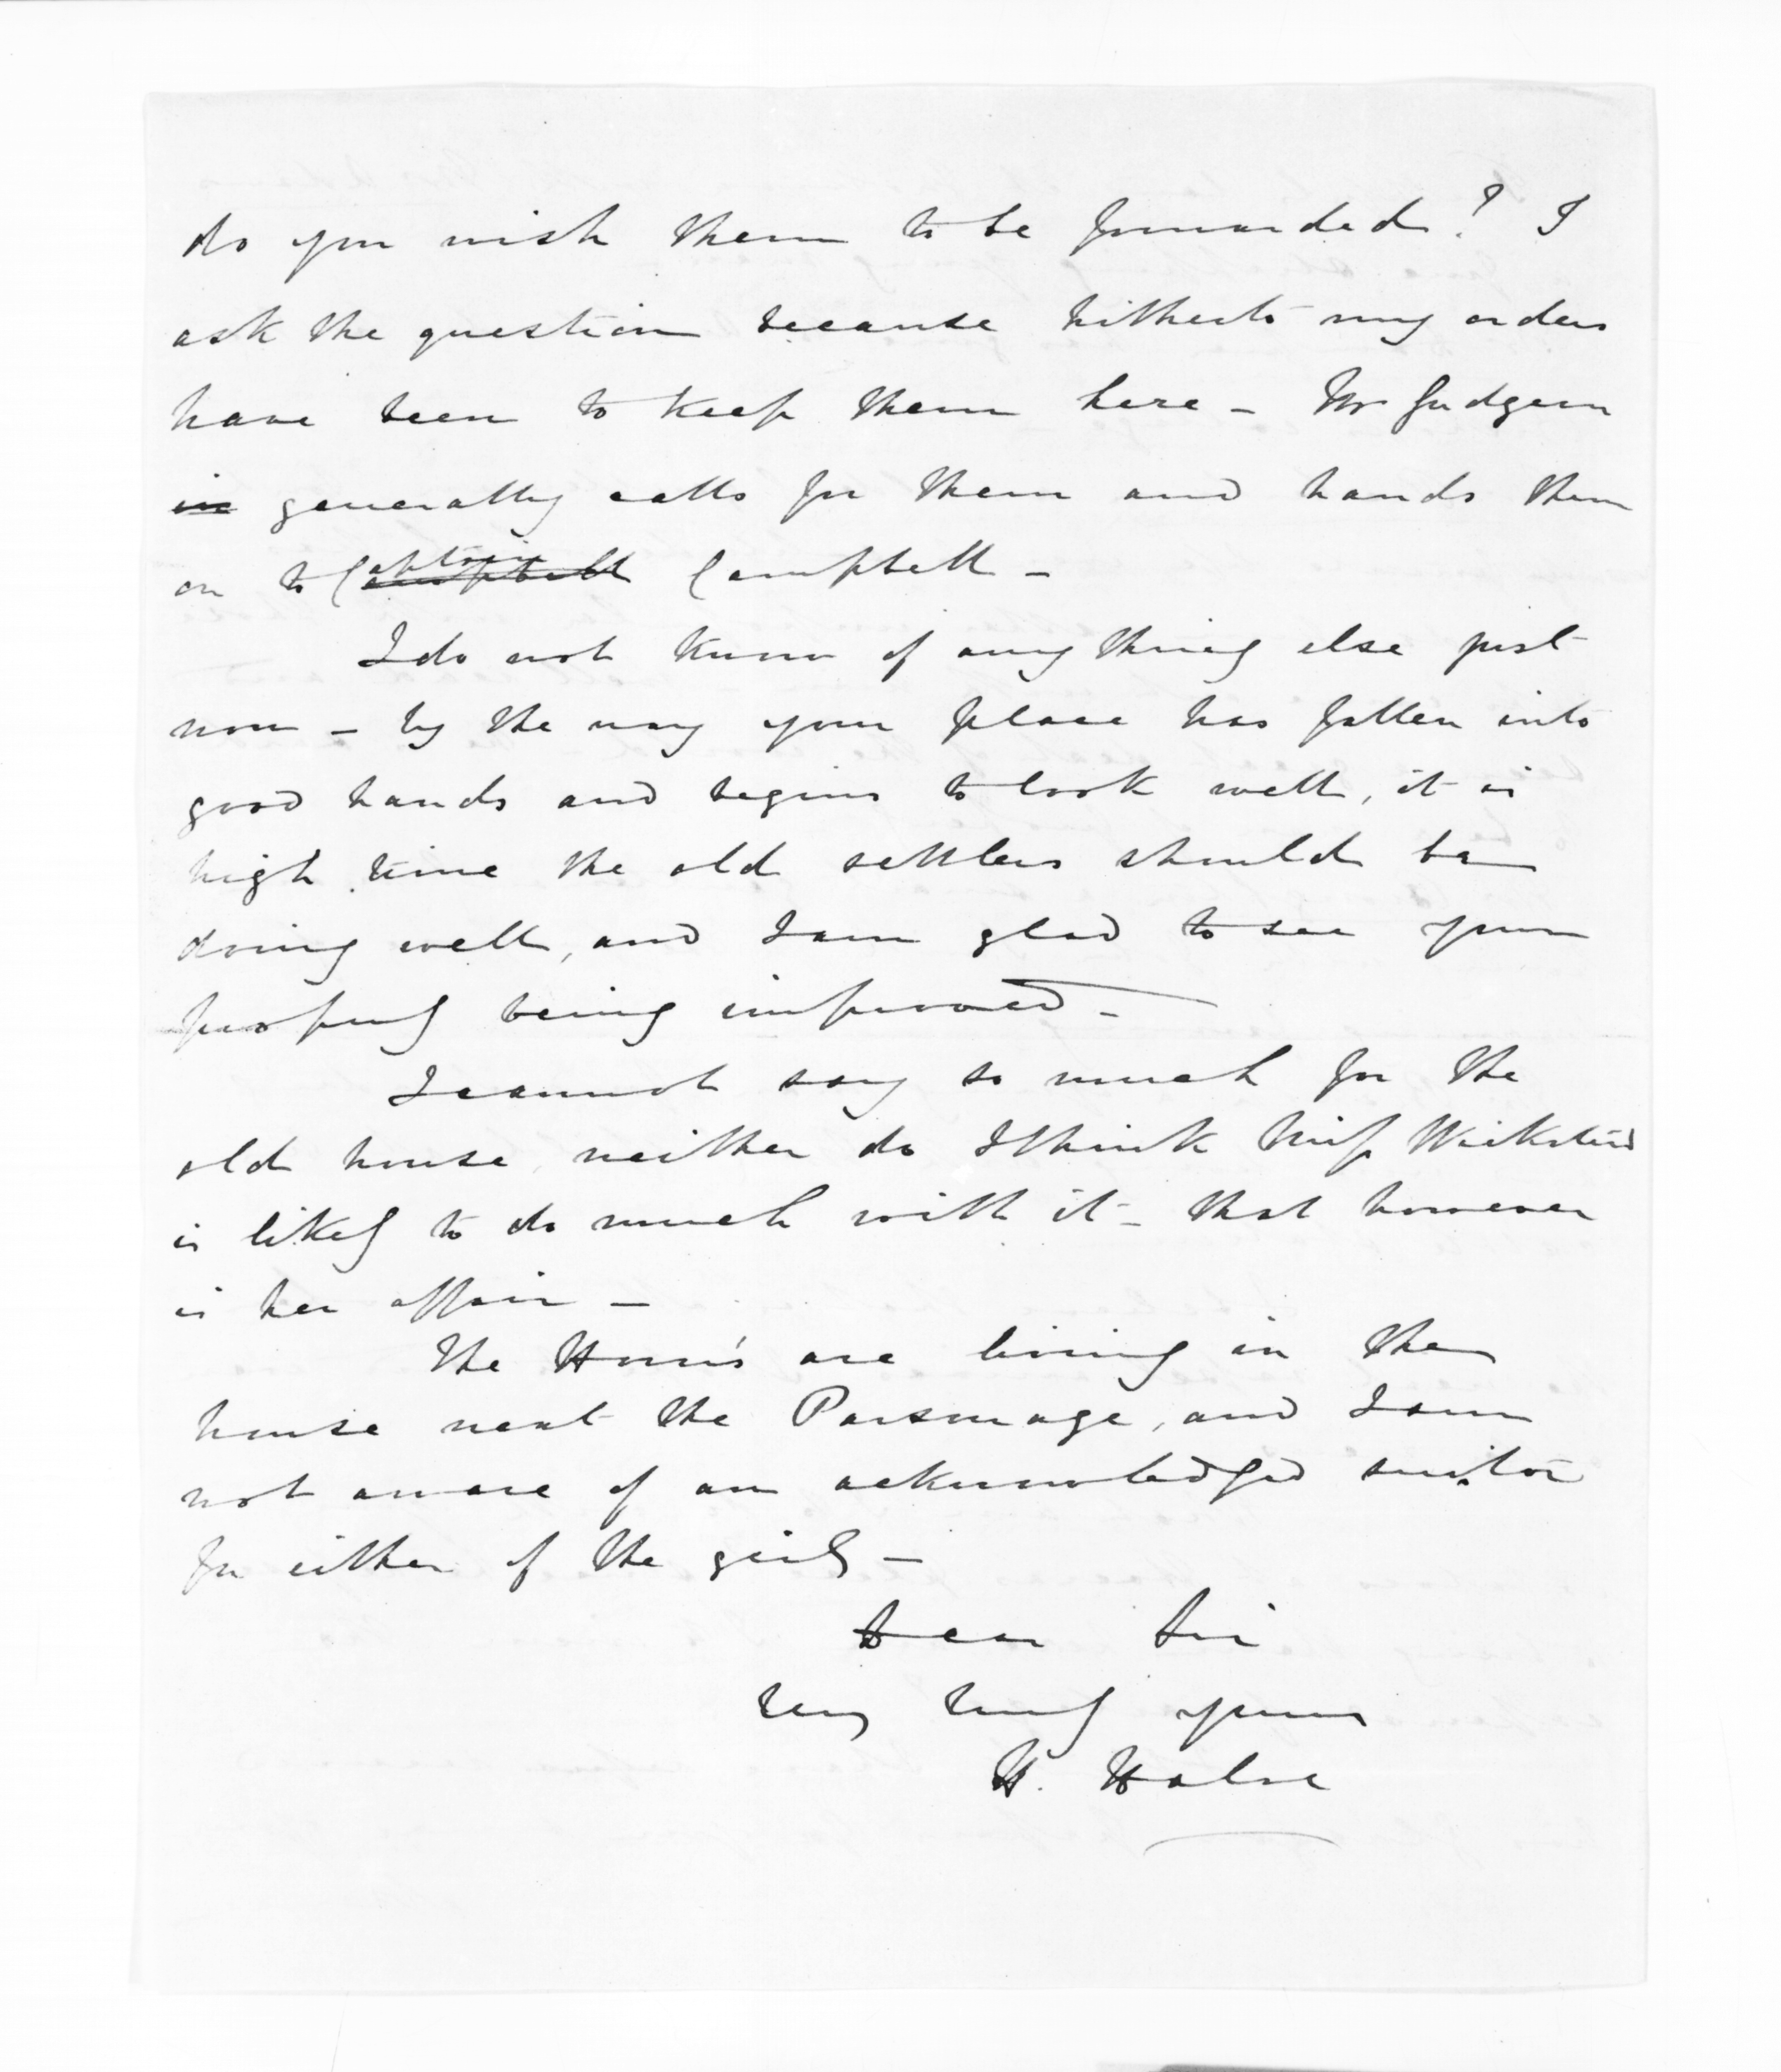 do you wish them to be forwarded? I
ask the question because hitherto my orders
have been to keep them here - Mr Gudgeon
generally calls for them and hands them
on to Captain Campbell -
I do not know of any thing else just
now - by the way your place has fallen into
good hands and begins to look well, it is
high time the old settlers should be
doing well, and I am glad to see your
property being improved -
I cannot say so much for the
old house, neither do I think Miss Wicksteed
is likely to do much with it - that however
is her affair -
The are living in the
house next the Parsonage, and I am
not aware of an acknowledged suitor
for either of the girls -
Dear Sir
Very truly yours
H. Halse